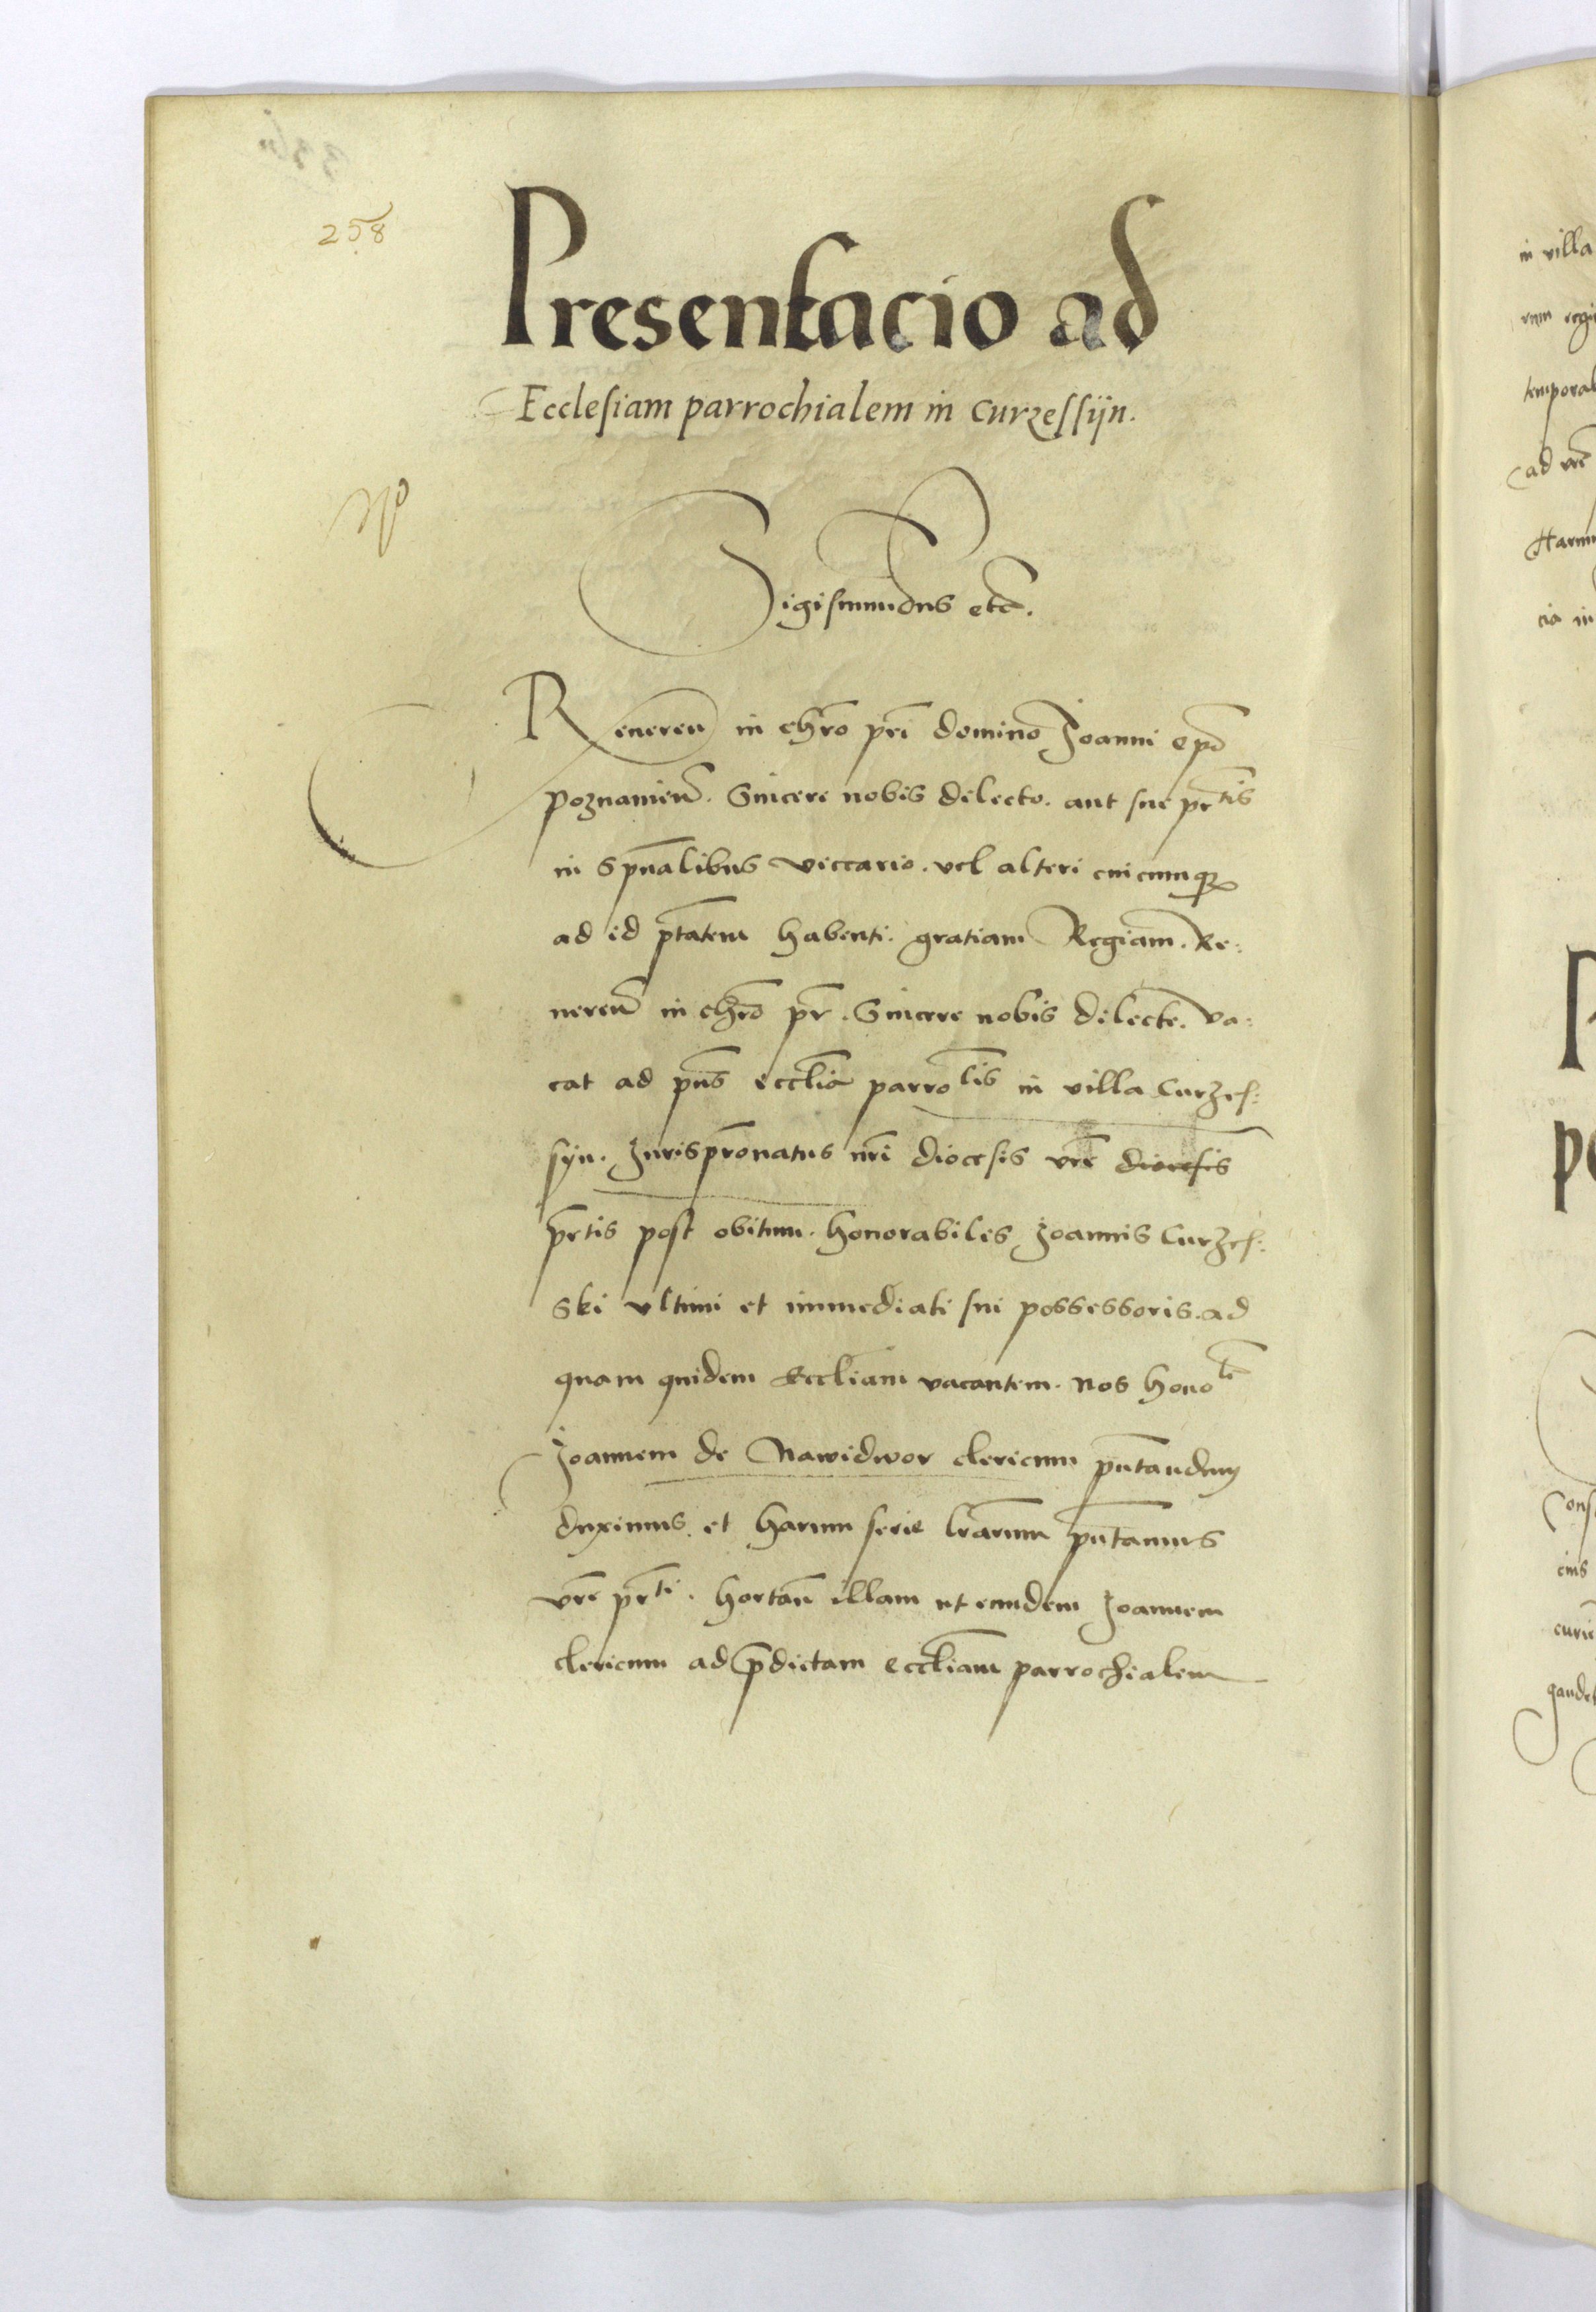 258
Presentacio ad
Ecclesiam parrochialem in Curzessijn.
Sigismundus etc̃.
Reueren̄ in chr̄o pr̄i domino Joanni ep̄o
poznanien̄. Sincere nobis dilecto. aut sue pr̄tis
in sp̄ualibus viccario. vel alteri cuicumq̨
ad id p̄tatem habenti. gratiam Regiam. Re:
ueren̄ in chr̄o pr̄. Sincere nobis dilecte. va:
cat ad pn̄s eccl̄ia parrolis in villa Curzes:
syn. Jurispr̄onatus nr̄i diocesis vr̄e diocesis
pr̄tis post obitum. honorabilis Joannis Curzes:
ski vltimi et immediati sui possessoris. ad
quam quidem Eccl̄iam vacantem. nos honolẽ
Joannem de Nawidwor clericum pn̄tandum
duximus. et harum serie lr̄arum pn̄tamus
vr̄e pr̄ti. hortan̄ illam ut eundem Joannem
clericum ad p̄dictam eccl̄iam parrochialem
in villa
temporal
ad vr̄e
Harum
cia in
P
po
Cons
eius
gaudet